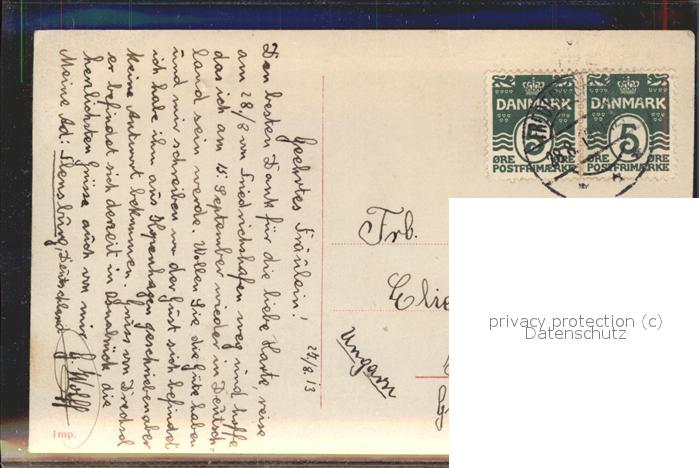 Geehrtes Fräulein!
24/8.13
Den besten Dank für die liebe Karte reise
am 28/8 von Friedrichshafen weg und hoffe
das ich am 15 September wieder in Deutsch-
land sein werde. Wollen Sie die Güte haben
und mir schreiben wo der Gust sich befindet
ich habe ihm aus Kopenhagen geschrieben aber
keine Antwort bekommen. Gruss von Drechsel
er befindet sich derzeit in Osnabrück, die
herzlichsten Grüsse auch von mir G. Wolff
Meine Ad: Flensburg, Deutschland
Imp.
DANMARK
5
ØRE
POSTFRIMÆRKE
DANMARK
5
ØRE
POSTFRIMÆRKE
Frl.
Ungarn
privacy protection (c)
Datenschutz